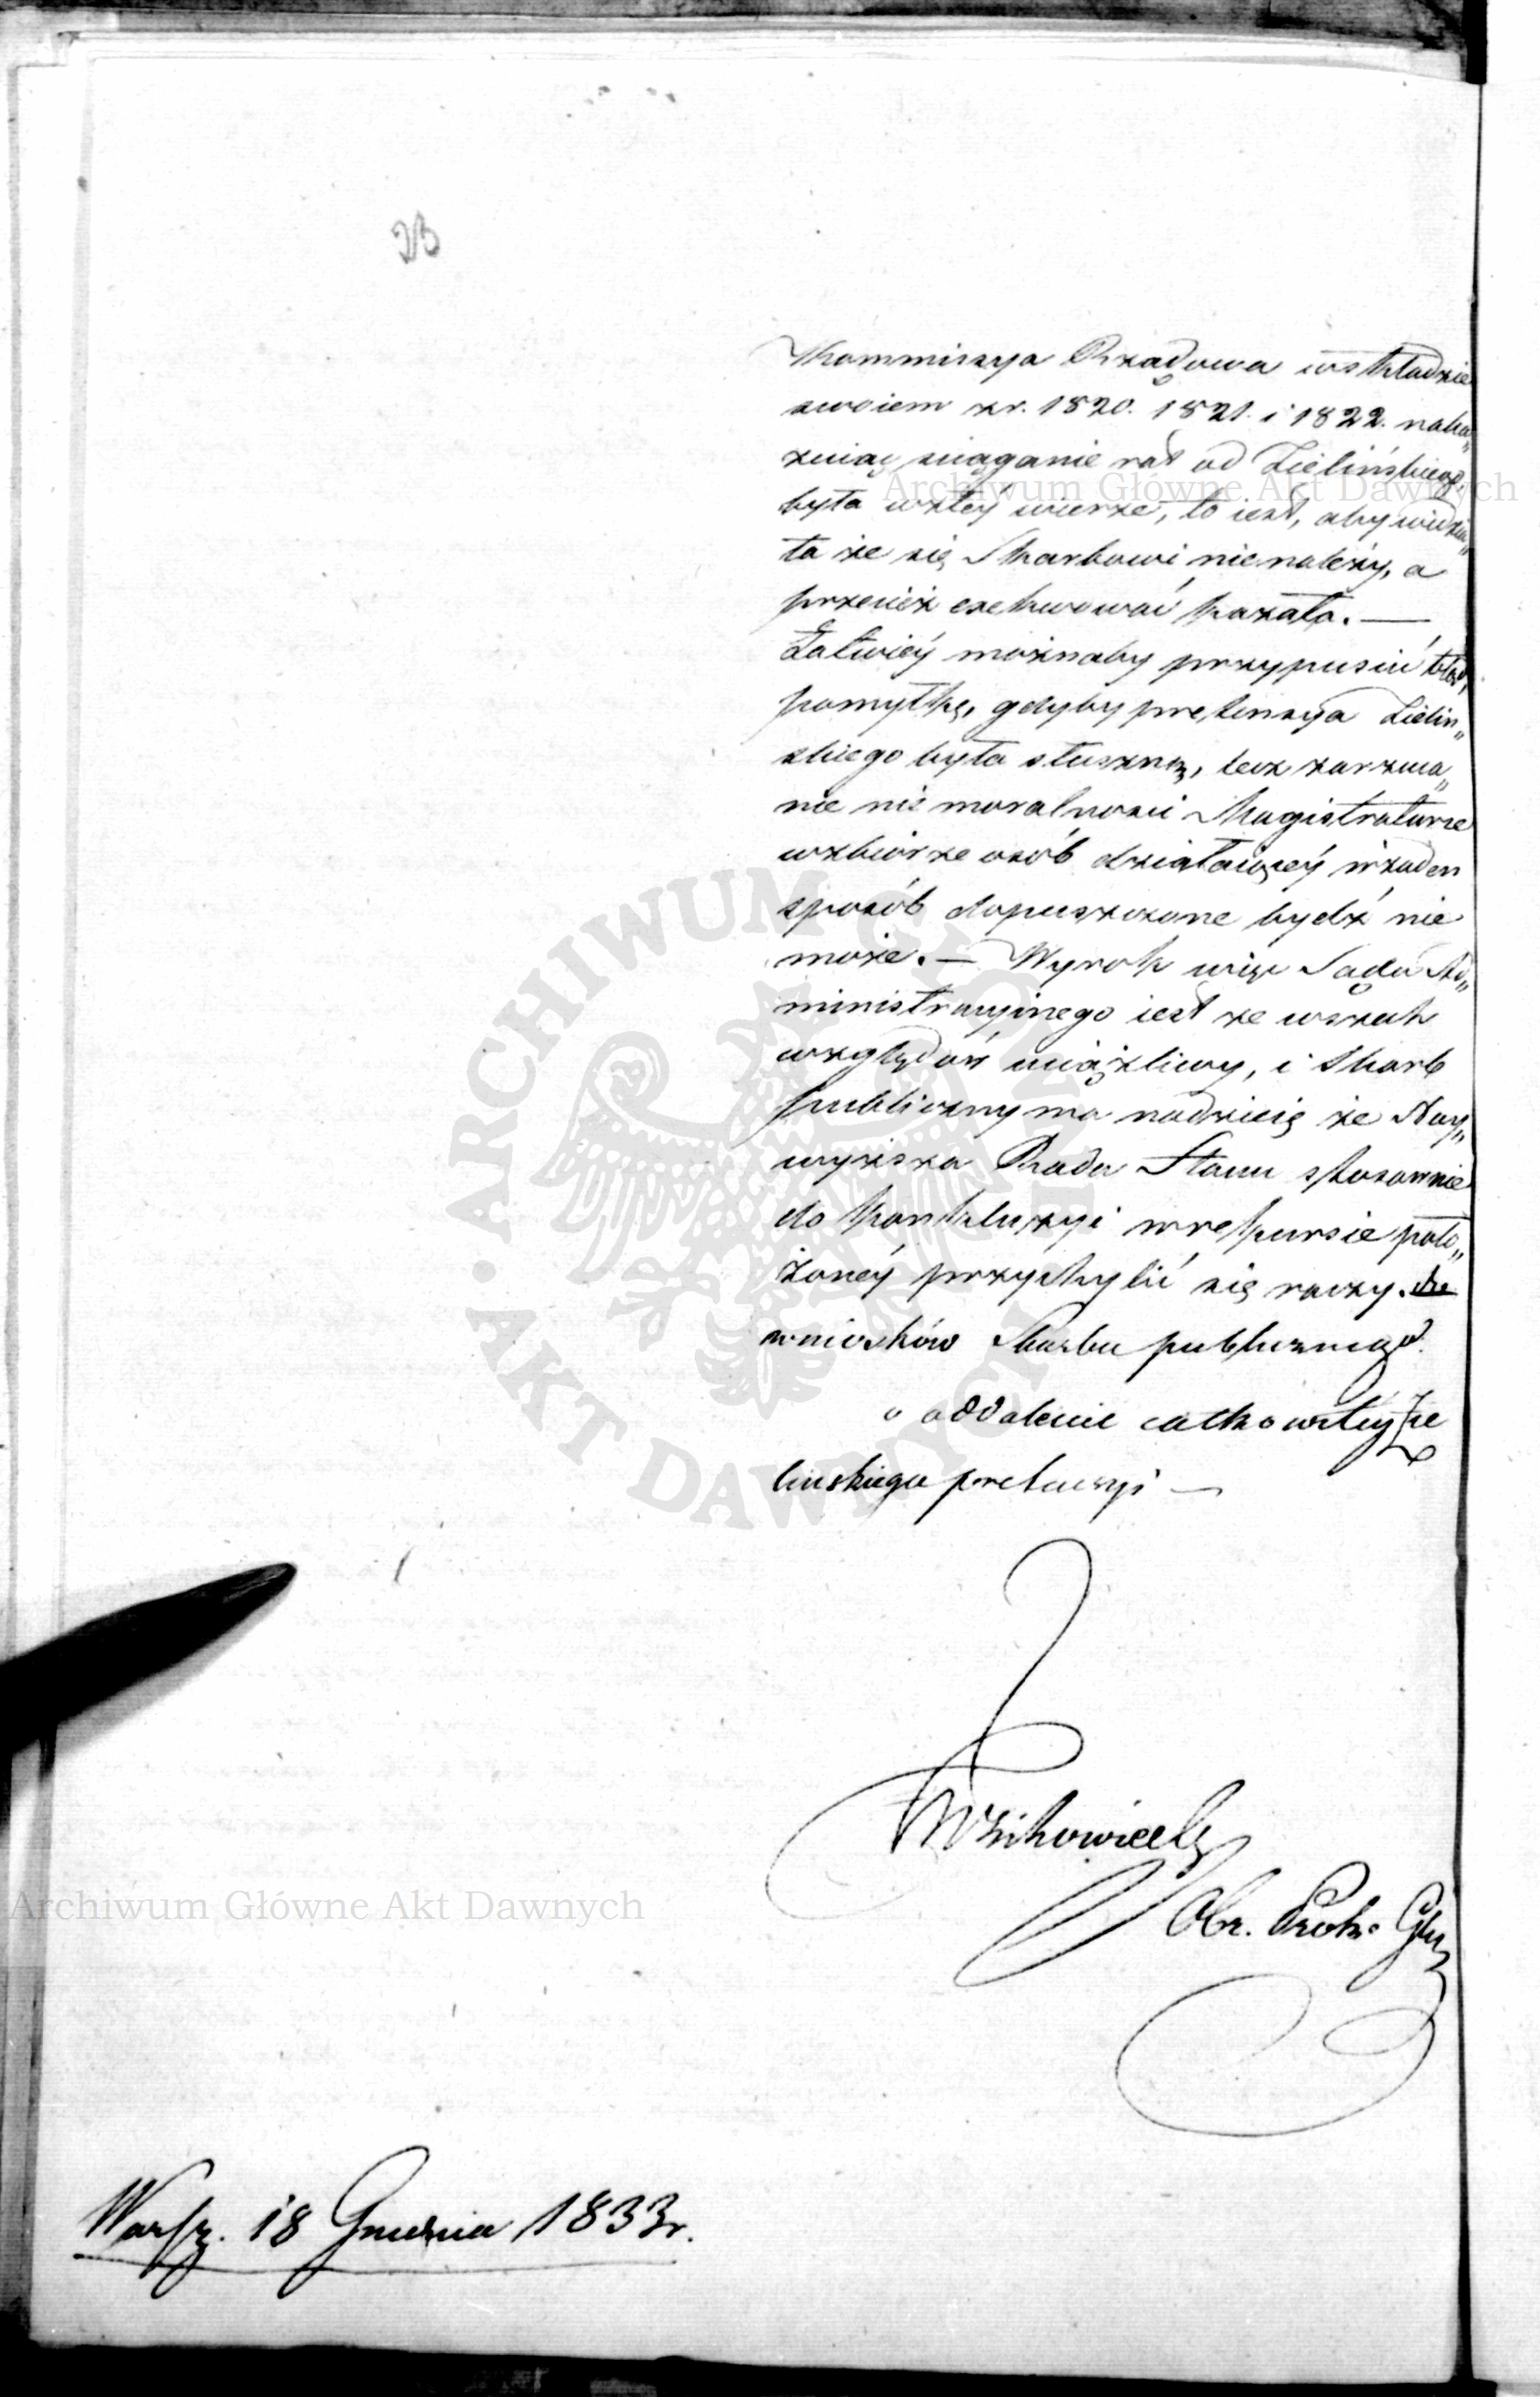 23
Kommissya Rządowa w składzie
swoiem z r. 1820. 1821. i 1822. naka„
zuiąc sciąganie rat od Zielińskiego,
była w złéy wierze, to iest, aby widzia„
ła że się Skarbowi nie należy, a
przecież exekwować kazała. —
Łatwiéy możnaby przypuścić błąd,
pomyłkę, gdyby pretensya Zieliń„
skiego była słuszną, lecz zarzuca„
nie nie moralności Magistraturze
w zbiorze osób działaiącéy w żaden
sposób dopuszczone bydź nie
może. — Wyrok więc Sądu Ad„
ministracyinego iest ze wszech
względów uciążliwy, i Skarb
publiczny ma nadzieię że Nay„
wyższa Rada Stanu stosownie
do konkluzyi w rekursie poło„
żonéy przychylić się raczy. do
wniosków Skarbu publicznego.
o oddalenie całkowitey Zie
linskiego pretensyi —
Obr. Prok. Gln
Warsz. 18 Grudnia 1833 r.
Archiwum Główne Akt Dawnych
Archiwum Główne Akt Dawnych
ARCHIWUM GŁÓWNE AKT DAWNYCH